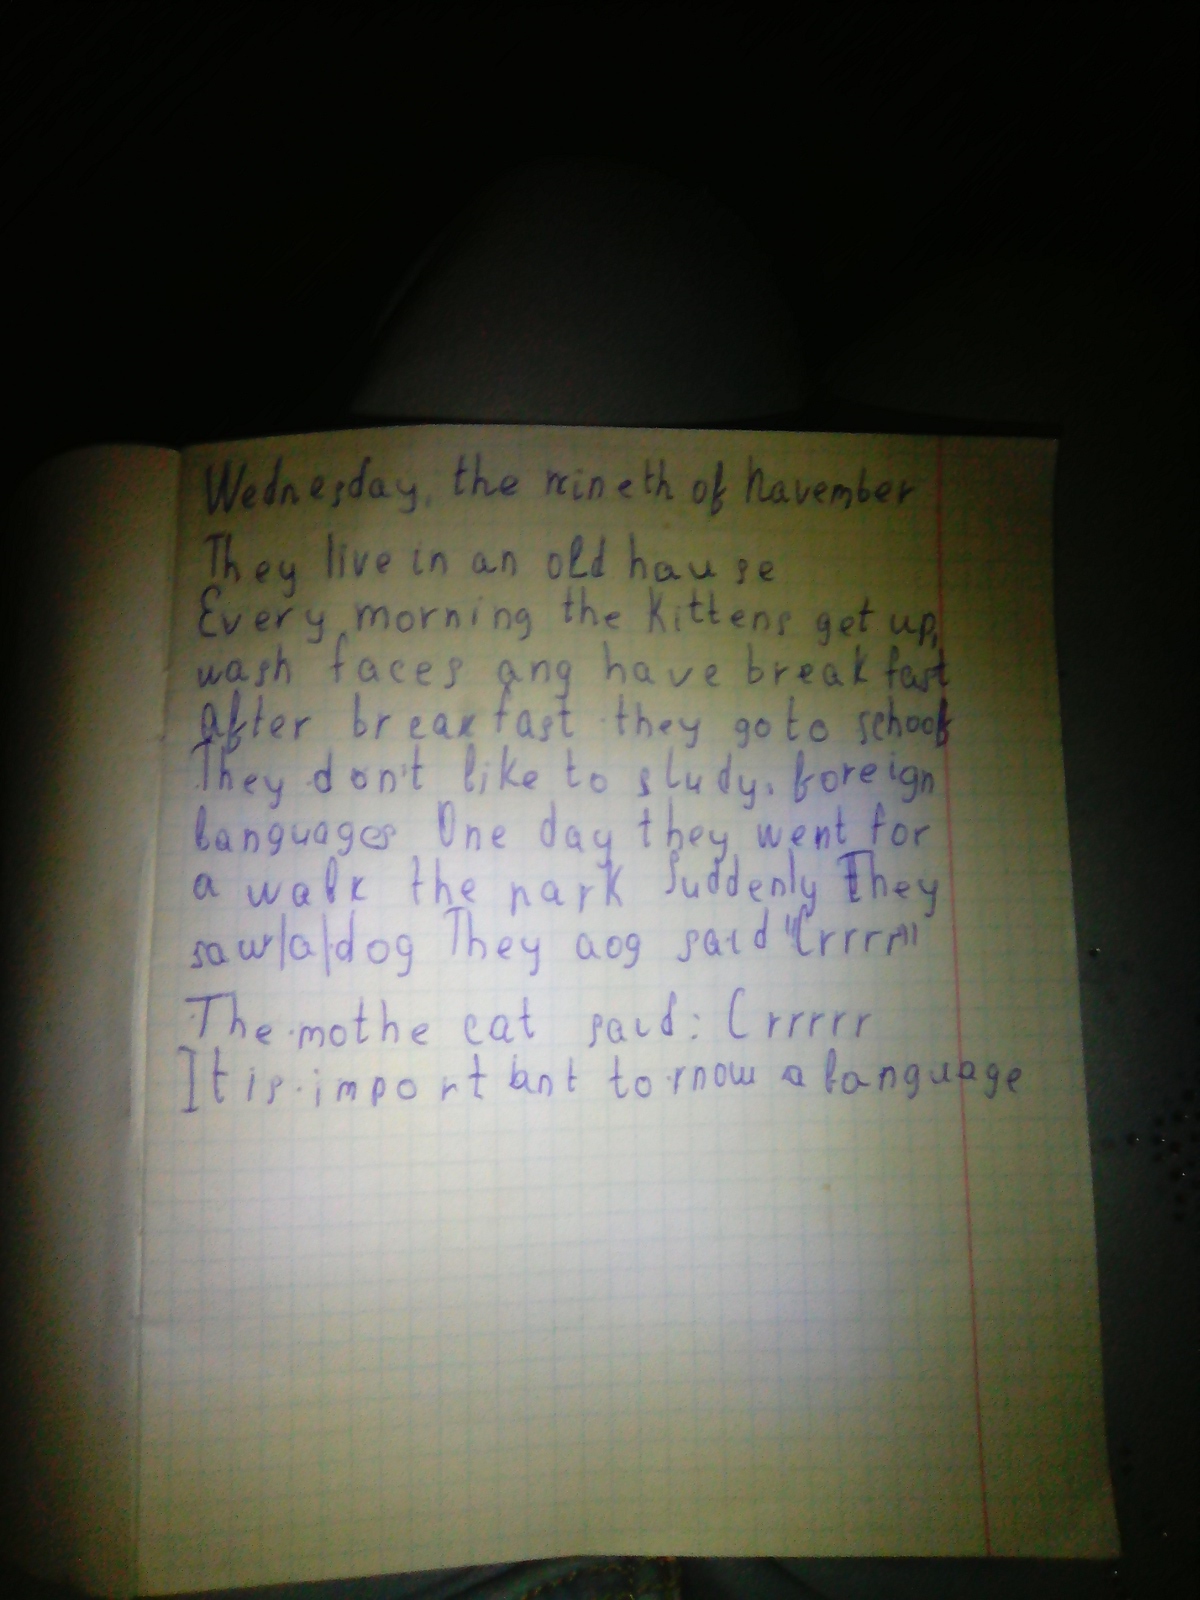 Wednesday, the nineth of November
They live in an old hause
Every morning the kittens get up,
wash faces ang have breakfast
after breakfast they go to school
They don't like to study. foreign
languages One day they went for
a walk the park Suddenly They
saw|a|dog They aog said "Crrrr"
The mothe cat said: Crrrrr
It is important to know a language